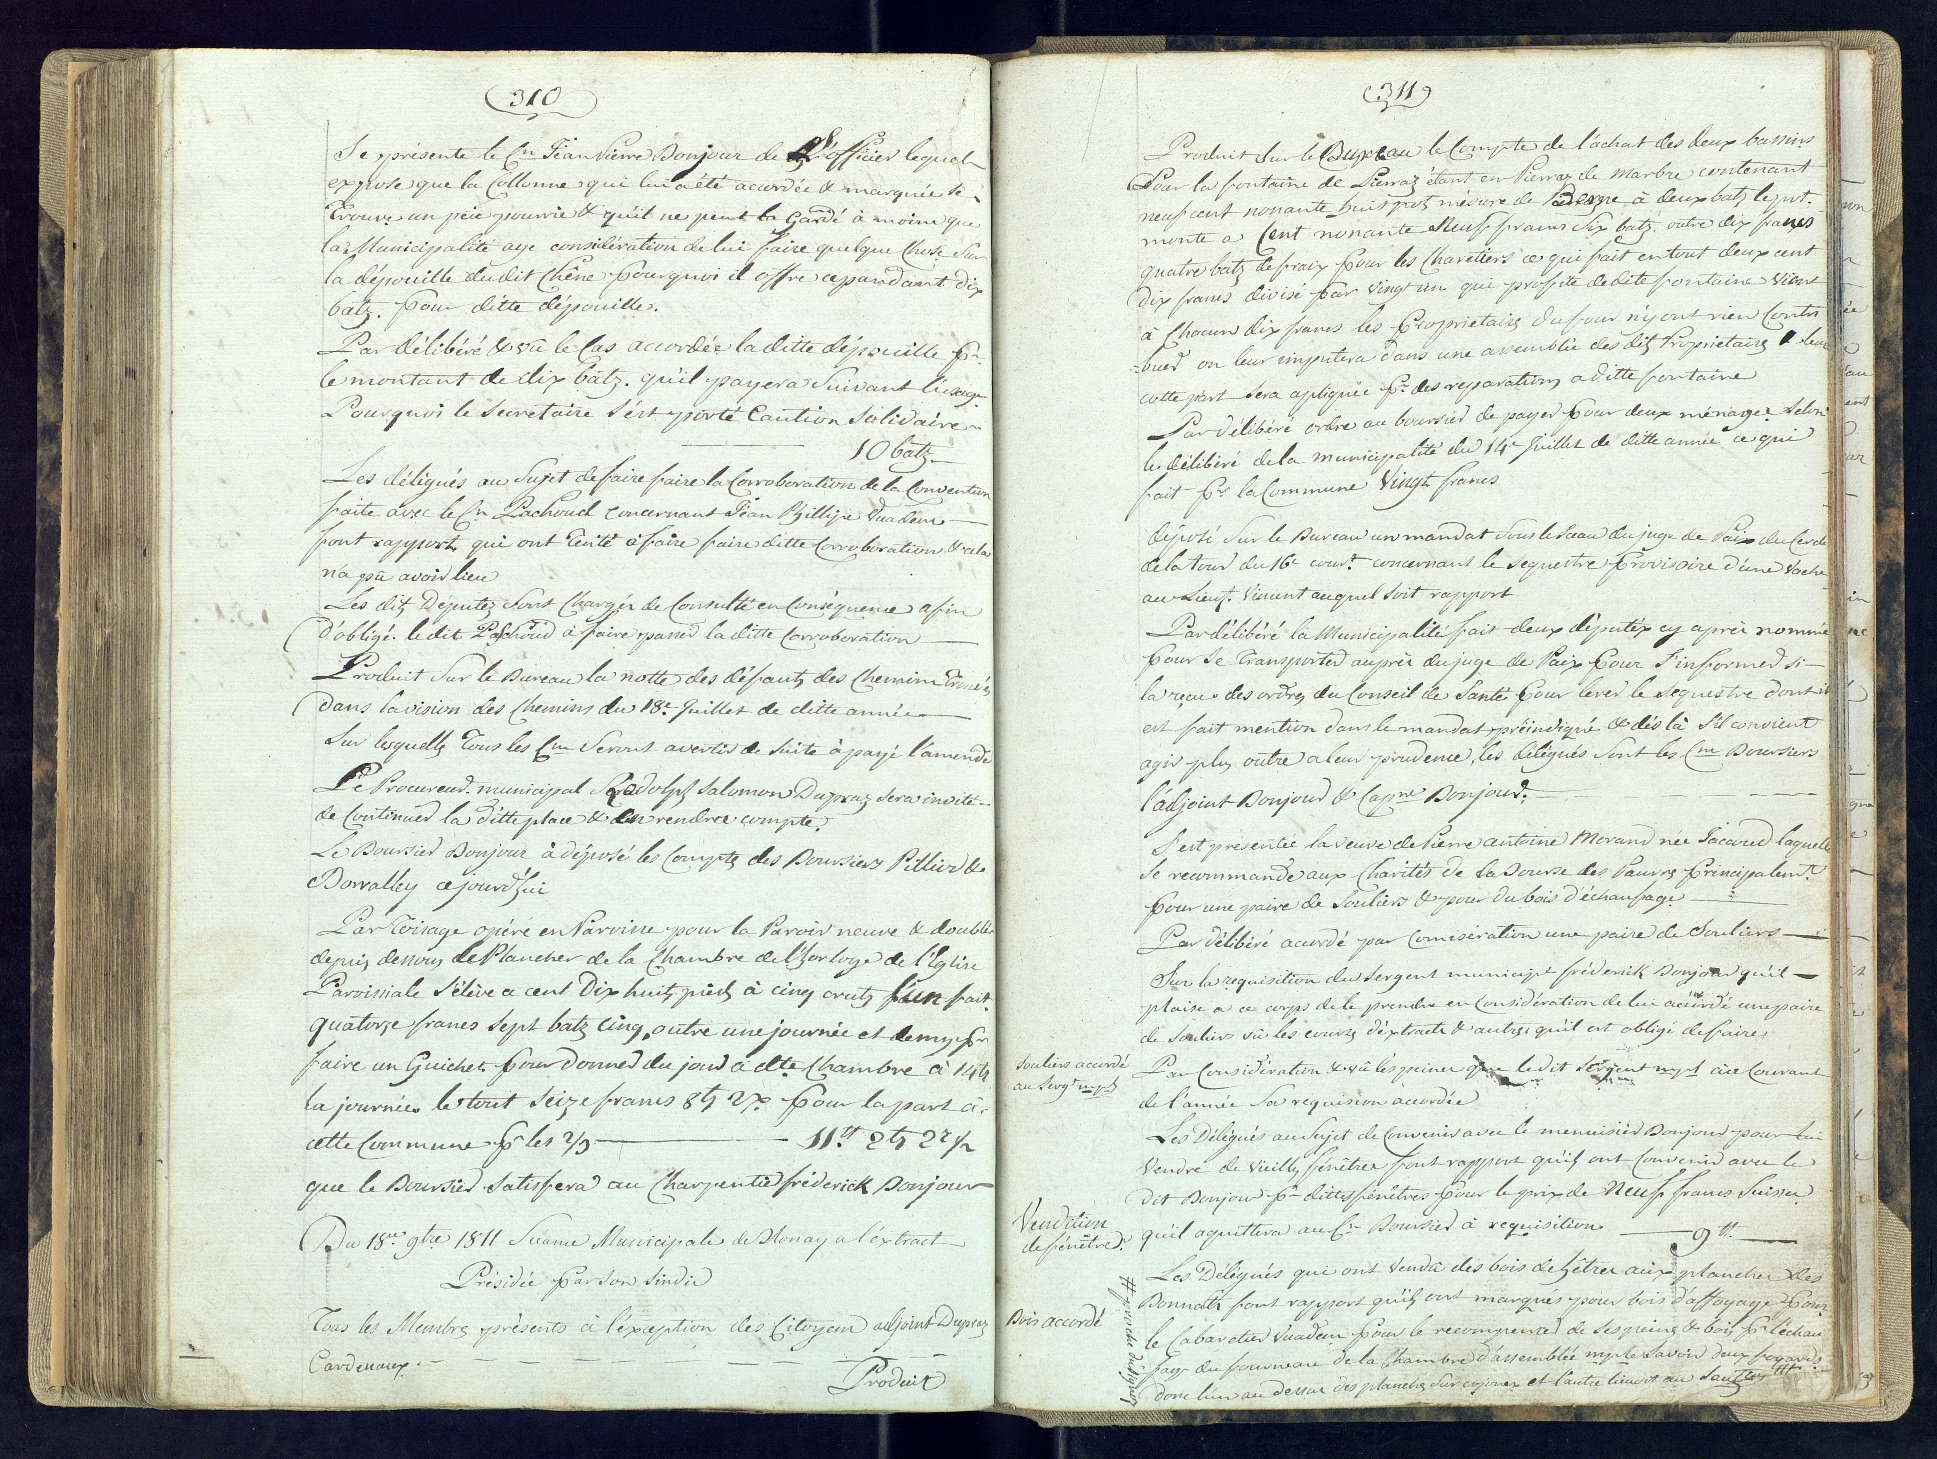 310
Se présente le Cn Jean Pierre Bonjour de l'officier lequel
expose que la Collonne qui lui a été acordée & marquée se
trouve un peu pourrie & qu'il ne peut la Gardé à moins que
la Municipalité aye considération de lui faire quelque Chose Sur
la dépouille dudit Chêne pourquoi il offre cependant dix
batz. pour ditte dépouille.
Par délibéré & vû le Cas accordée la ditte dépouille pr
le montant de dix batz. qu'il payera Suivant l'usage
Pourquoi le Secretaire s'est porté Caution Solidaire
10 batz
Les délégués au Sujet de faire faire la Corroboration de la Convention
faite avec le Cn Pachoud concernant Jean Phillipe Vuadens
font rapport qui ont tenté à faire faire ditte Corroboration & cela
n'a pû avoir lieu
Les dits Députez Sont Chargés de Consulté en Conséquence afin
d'obligé le dit Pachoud à faire passer la ditte Corroboration
Produit Sur le Bureau la notte des défauts des Chemins Trouvés
dans la vision des Chemins du 18e Juillet de ditte année
Sur lesquelles Tous les Cns Seront avertis de Suite à payé l'amende
Le Procureur municipal Rodolph Salomon Dupraz sera invité
de Continuer la ditte place & d'en rendre compte.
Le Boursier Bonjour à déposé les Comptes des Boursiers Pillier &
Dorvalley ce jourd'hui
Par Toisage opéré en Paroisse pour la Paroir neuve & doublée
depuis dessous le Plancher de la Chambre de l'horloge de l'Eglise
Paroissiale S'élève a cent Dix huit pieds à cinq crutz l'un fait
quatorze francs Sept batz cinq, outre une journée et demy pr
faire un Guichet pour donner du jour à dte Chambre à 14 btz
la journée le tout Seize francs 8 btz 2x pour la part à
cette Commune pr les 2/3 11 ff 2 btz 2 r 1/2
que le Boursier Satisfera au Charpentier fréderick Bonjour
Du 18me 9bre 1811 Séance Municipale de Blonay a l'éxtract
Présidée par son Sindic
Tous les Membres présents à l'éxception des Citoyens adjoint Dupraz
Cardenaux.
Produit
311
Produit Sur le Bureau le Compte de l'achat des deux bassins
Pour la fontaine de Pierraz étant en Pierraz de marbre contenant
neuf cent nonante huit pots mésure de à deux batz le pot.
monte a Cent nonante Neuf francs Six batz. outre dix francs
quatre batz de fraix pour les Charetiers ce qui fait en tout deux cent
dix francs divisé par vingt un qui profite de dite fontaine vient
à Chacun dix francs les Proprietaires du four n'y ont rien Contri
-bué on leur imputera dans une assemblée des dits Proprietaires leur
cotte part sera apliquée pr des reparations a ditte fontaine
Par délibéré ordre au boursier de payer pour deux ménages Selon
le délibéré de la municipalité du 14e Juillet de ditte année ce qui
fait pr la Commune Vingt francs
déposé Sur le Bureau un mandat Sous le Sceau du juge de Paix du Cercle
de la Tour du 16e court concernant le Sequestre Provisoire d'une Vache
au Lieut. Vincent auquel Soit rapport
Par délibéré la Municipalité fait deux députés cy après nommé
pour Se Transporter auprès du juge de Paix pour S'informer si
la reçu des ordres du Conseil de Santé pour lever le Sequestre dont il
est fait mention dans le mandat préindiqué & dés là S'il convient
agir plus outre a leur prudence, les délégués Sont les Cns Boursiers
l'adjoint Bonjour & Capne Bonjour.
S'est présentée la veuve de Pierre antoine Morand née Jaccoud laquelle
Se recommande aux Charités de la Bourse des Pauvres Principalemt
pour une paire de Souliers & pour du bois d'échaufage
Par délibéré acordé par Comisération une paire de Souliers
Sur la requisition du Sergent municipl fréderick Bonjour qu'il
plaise a ce corps de le prendre en Considération de lui accordé une paire
de Souliers vû les courses d'éxtracts & autres qu'il est obligé de faire
Souliers accordé
au Sergt mpl
Par Considération & vû les peines que le dit Sergent mpl à eu Courant
de l'année Sa requision accordée
Les Délégués au Sujet de Convenir avec le menuisier Bonjour pour lui
Vendre de Vieilles fénêtres font rapport qu'ils ont Convenir avec le
dit Bonjour pr dittes fénêtres pour le prix de Neuf francs Suisses
qu'il aquittera au Cn Boursier à requisition 9 ff
Vendition
de fénêtres.
Les Délégués qui ont vendû des bois de hêtres aux planches des
Bonnats font rapport qu'ils ont marqués pour bois d'affoyage pour
le Cabaretier Vuadens pour le recompenser de Ses peines & bois pr l'échau
fage du fourneau de la Chambre d'assemblée mple Savoir deux foyards
donc l'un au dessus des planches Sur cojonex et l'autre lieudit au Sautter #
Bois accordé